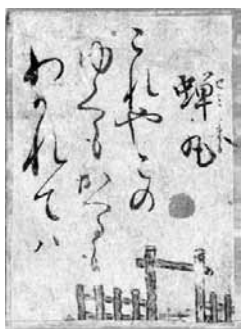 蝉丸
せミまる
これやこの
ゆくもかへるも
わかれてハ